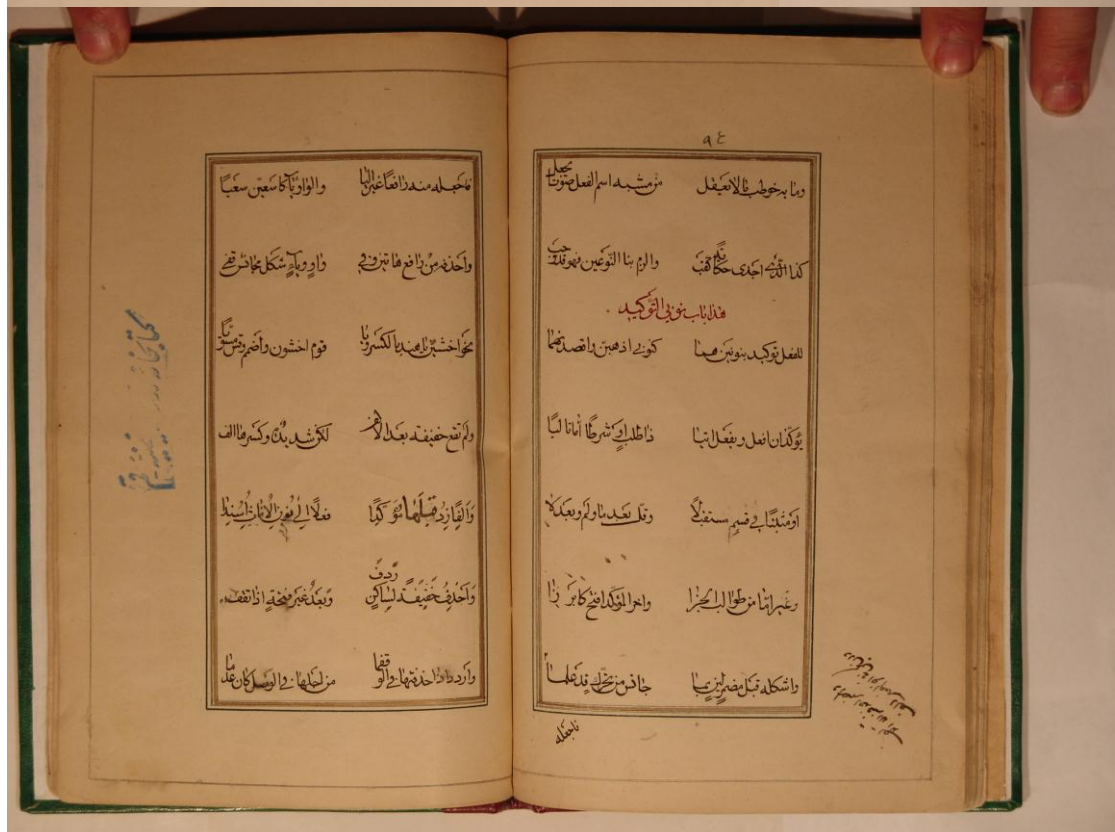 ٩٤
وما به خوطب مالا يعقل من مشبه اسم الفعل صوتا يجعل
كذا الذي اجدى حكاية كقب والزم بنا النوعين فهو قد وجب
هذا باب نوني التوكيد
للفعل توكيد بنونين هما كنوني اذهبن واقصدنهما
يؤكدان افعل ويفعل اتيا ذا طلب او شرطا اما تاليا
او مثبتا في قسم مستقبلا وقل بعد ما ولم وبعد لا
وغير اما من طوالب الجزا واخر المؤكد افتح كابرزا
واشكله قبل مضمر لين بما جانس من تحرك قد علما
فاجعله
فاجعله منه رافعا غير اليا والواو ياء كاسعين سعيا
واحذفه من رافع هاتين وفي واو وياء شكل مجانس قفي
نحو اخشين يا هند بالكسر ويا قوم اخشون واضمم وقس مسويا
ولم تقع خفيفة بعد الالف لكن شديدة وكسرها الف
وَالفًا زِد قَبلَها مؤكدًا فعلًا الى نون الاناث اسندا
وَاحذِف خَفيفَةً لِساكنٍ رَدِفَ وَبَعدَ غَيرِ فتحةٍ اذا تقف
واردد اذا حذفتها في الوقف ما من اجلها في الوصل كان عدما
كتابخانه مدرسه قم